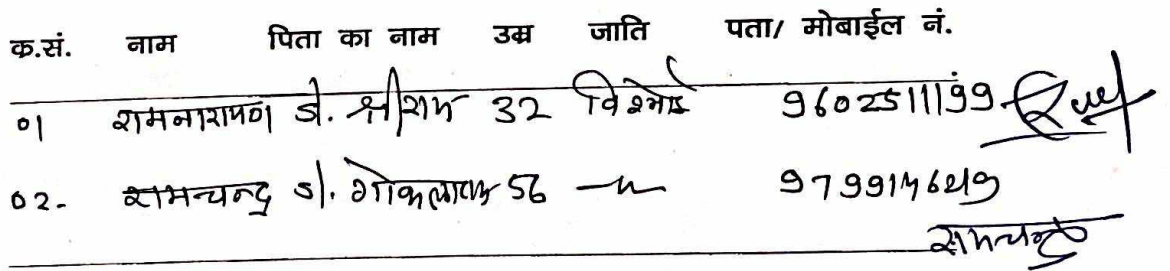 क.सं. नाम पिता का नाम उम्र जाति पता/ मोबाईल नं.
01 रामनारायण S/. श्रीराम 32 विश्नोई 9602511199
02- रामचन्द्र S/. गोकलाराम 56 —〃—
रामचन्द्र